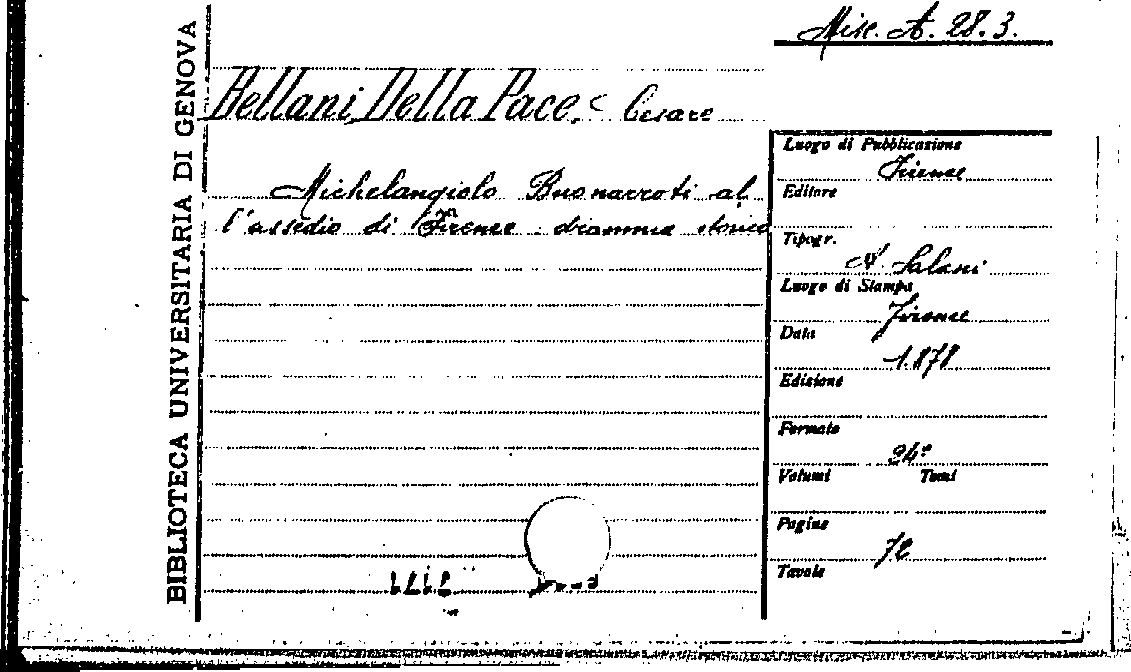 Misc. A. 28. 3.
BIBLIOTECA UNIVERSITARIA DI GENOVA
Bellani Della Pace, Cesare
Michelangiolo Buonarroti al
l'assedio di Firenze dramma storico
Luogo di Pubblicazione
Firenze
Editore
Tipogr.
A. Salani
Luogo di Stampa
Firenze
Data
1878
Edizione
Formato
24°
Volumi Tomi
Pagine
72
Tavole